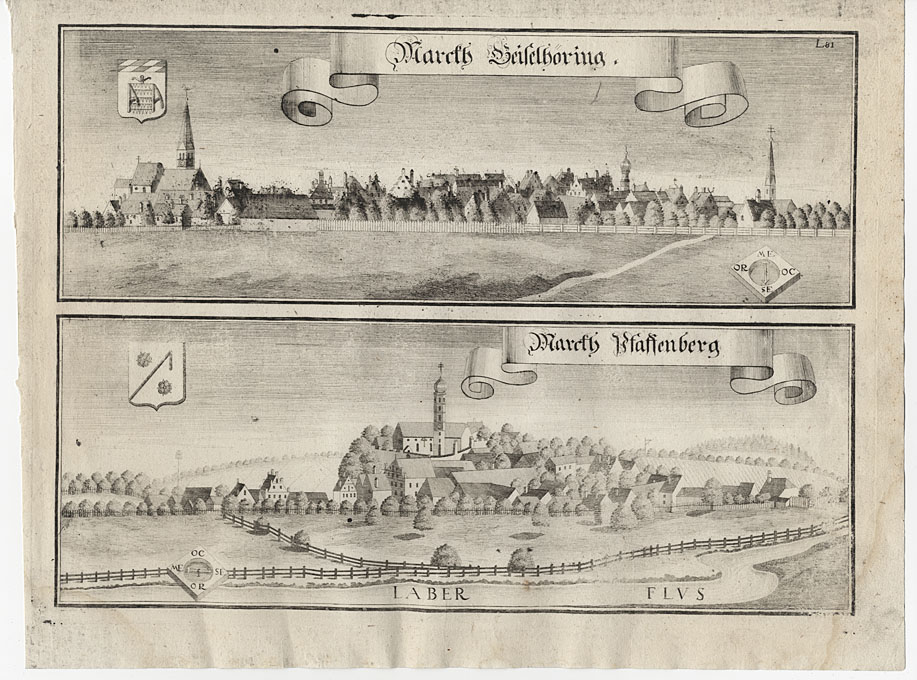 Marckh Geiselhöring.
L81
ME
OR OC
SE
Marckh Pfaffenberg
OC
ME SE
OR
LABER FLVS